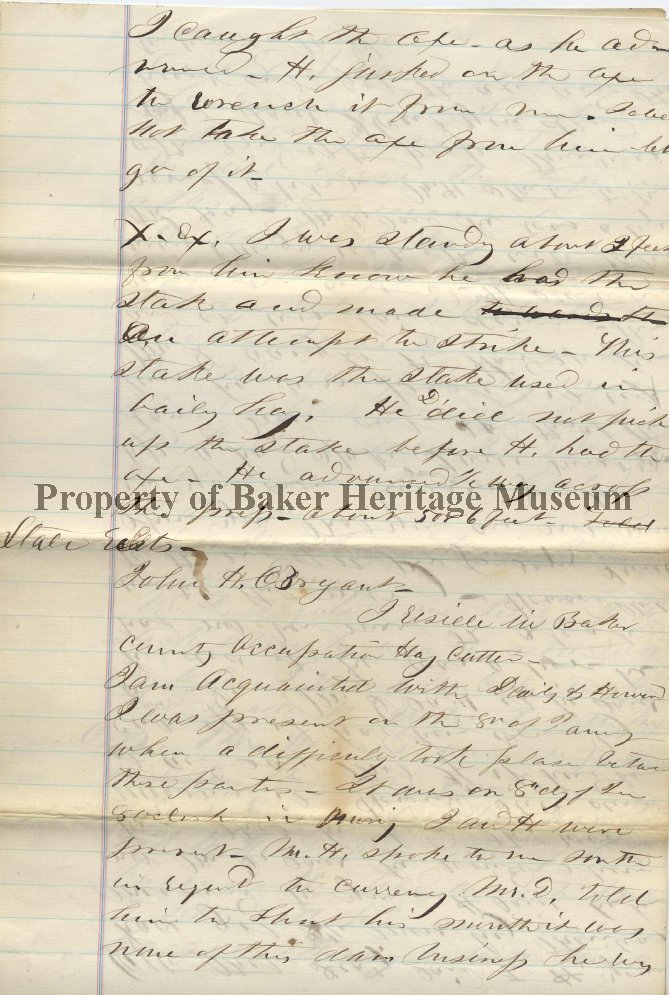 I caught the axe - as he ad-
- H. jerked on the axe
to wrench it from me.
not take the axe from him let
go of it -
X-Ex. I was standy about 3 feet
from him know he had the
stak and made
an attempt to strike - This
stake was the stake used in
baily hay. He did not pick
up the stake before H. had the
axe - He advanced way across
Property of Baker Heritage Museum
the press - about 5 or 6 feet -
State Rests -
John H. O Bryant -
I reside in Baker
county occupation Hay Cutter -
I am acquainted with &
I was present on the 8 of
when a difficulty took place betwee
these parties - It was on 8 dy of
8 oclock in I and H were
present - M. H. spoke to me
in regard to currency Mr. D. told
him to shut his mouth it was
none of his dam business he was